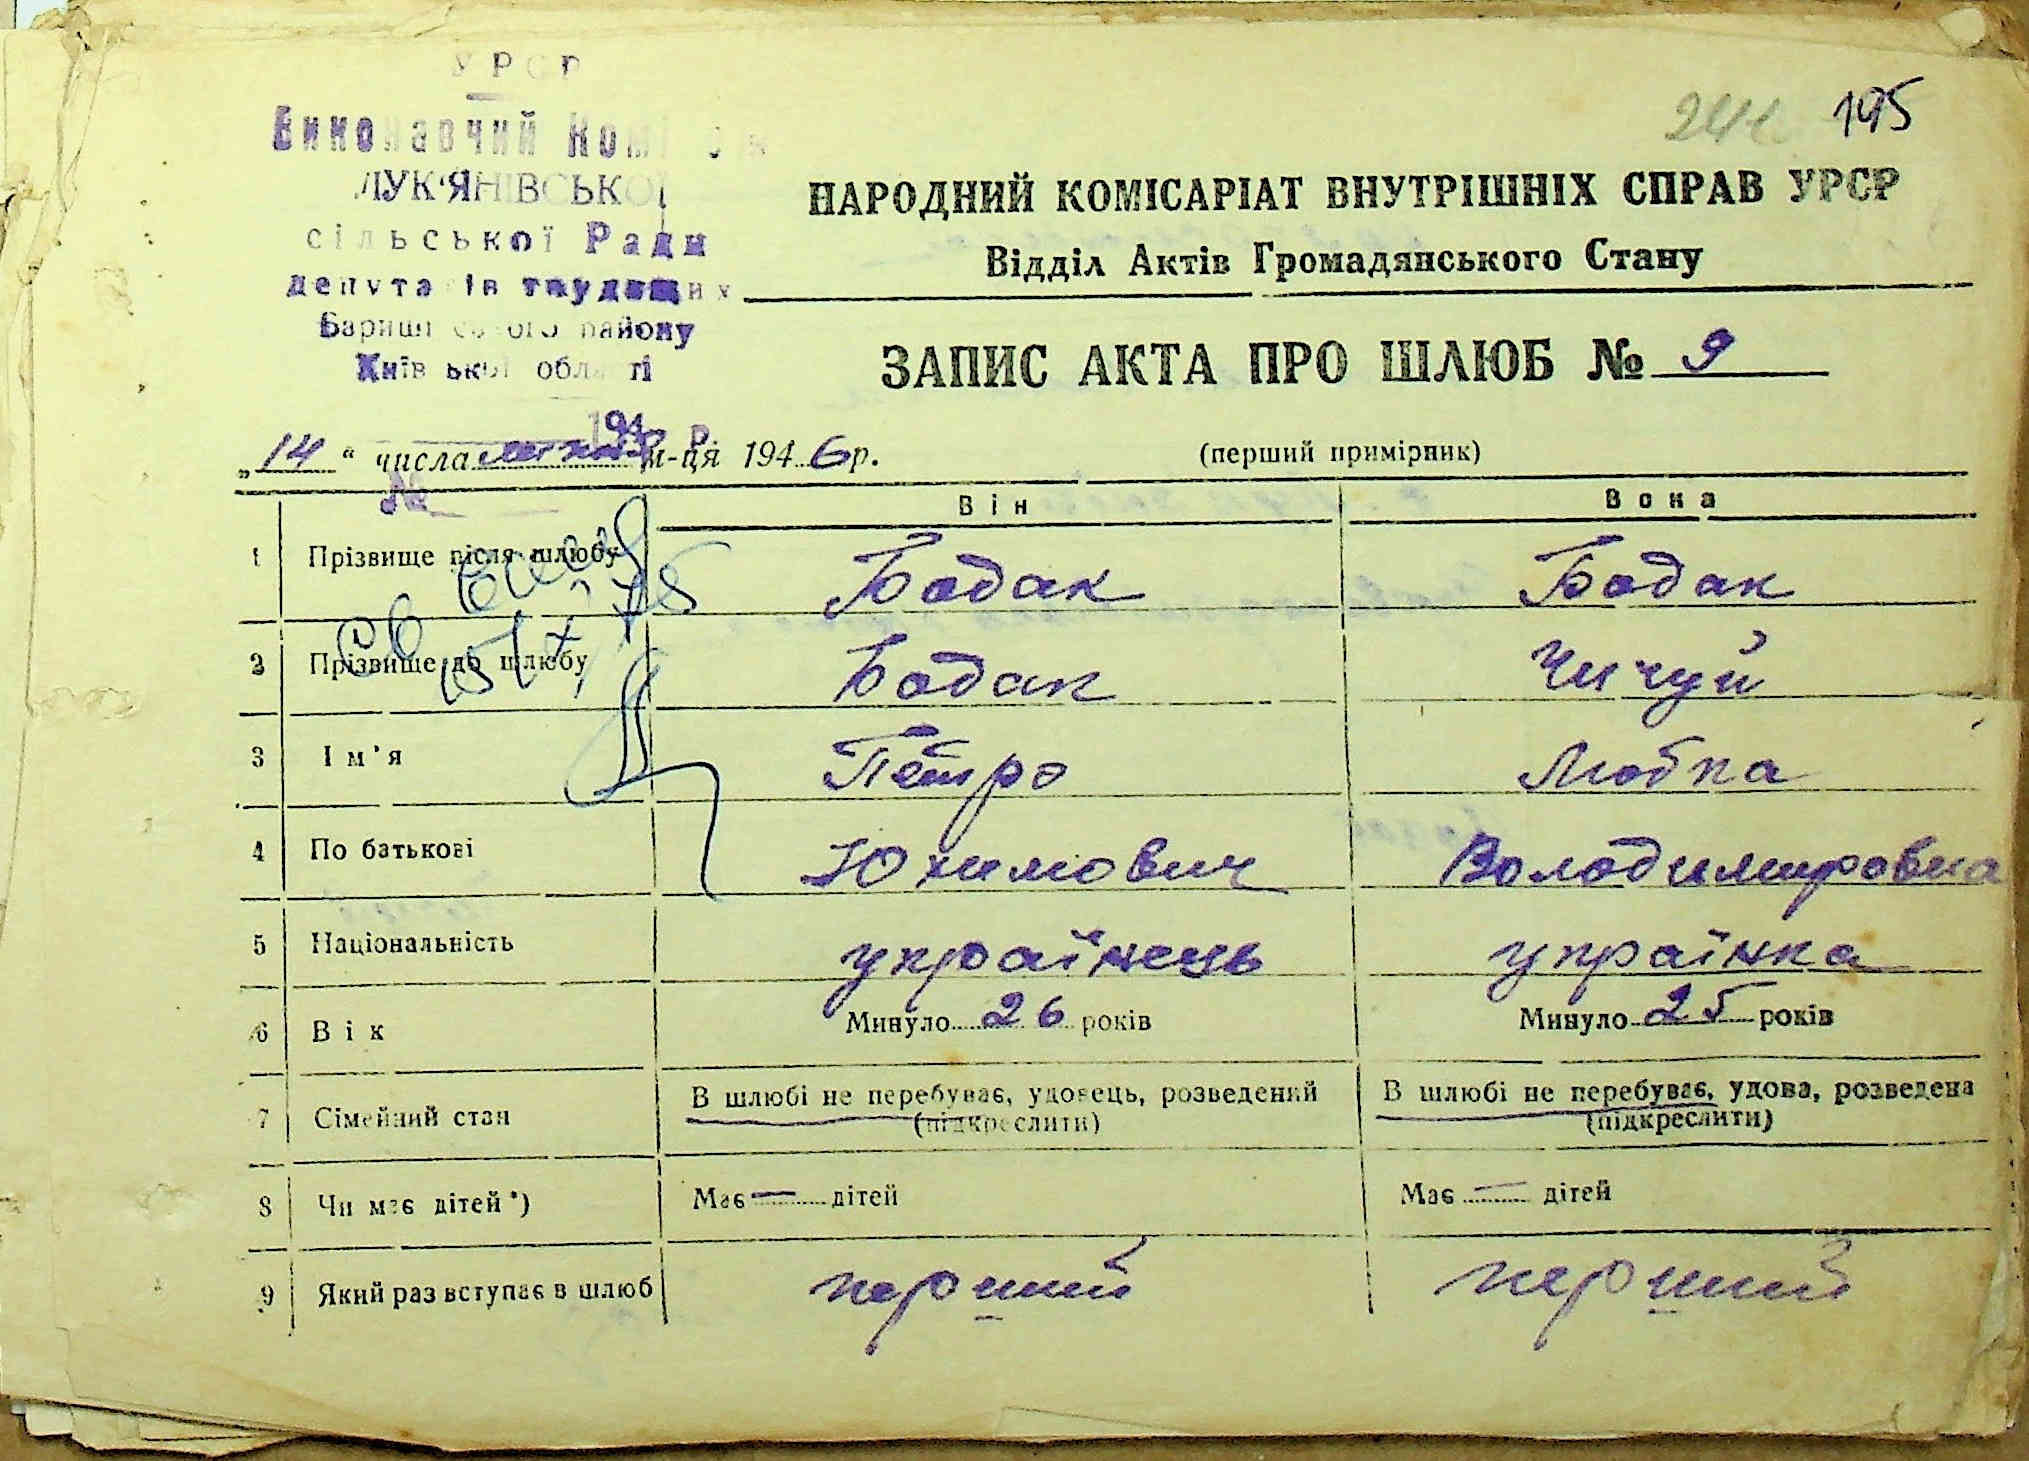 УРСР
Виконавчий Комітет
ЛУК'ЯНІВСЬКОЇ
сільської Ради
депутатів трудящих
Баришівського району
Київської області
194 р.
№
195
НАРОДНИЙ КОМІСАРІАТ ВНУТРІШНІХ СПРАВ УРСР
Відділ Актів Громадянського Стану
ЗАПИС АКТА ПРО ШЛЮБ № 9
„14“ числа м-ця 1946 р.
(перший примірник)
Він Вона
1 Прізвище після шлюбу Бодак Бодак
2 Прізвище до шлюбу Бодак Чичуй
3 Ім'я Петро Любка
4 По батькові Юхимович Володимировна
5 Національність українець українка
6 Вік Минуло 26 років Минуло 25 років
7 Сімейний стан В шлюбі не перебуває, удовець, розведений (підкреслити) В шлюбі не перебуває, удова, розведена (підкреслити)
8 Чи має дітей *) Має — дітей Має — дітей
9 Який раз вступає в шлюб перший перший